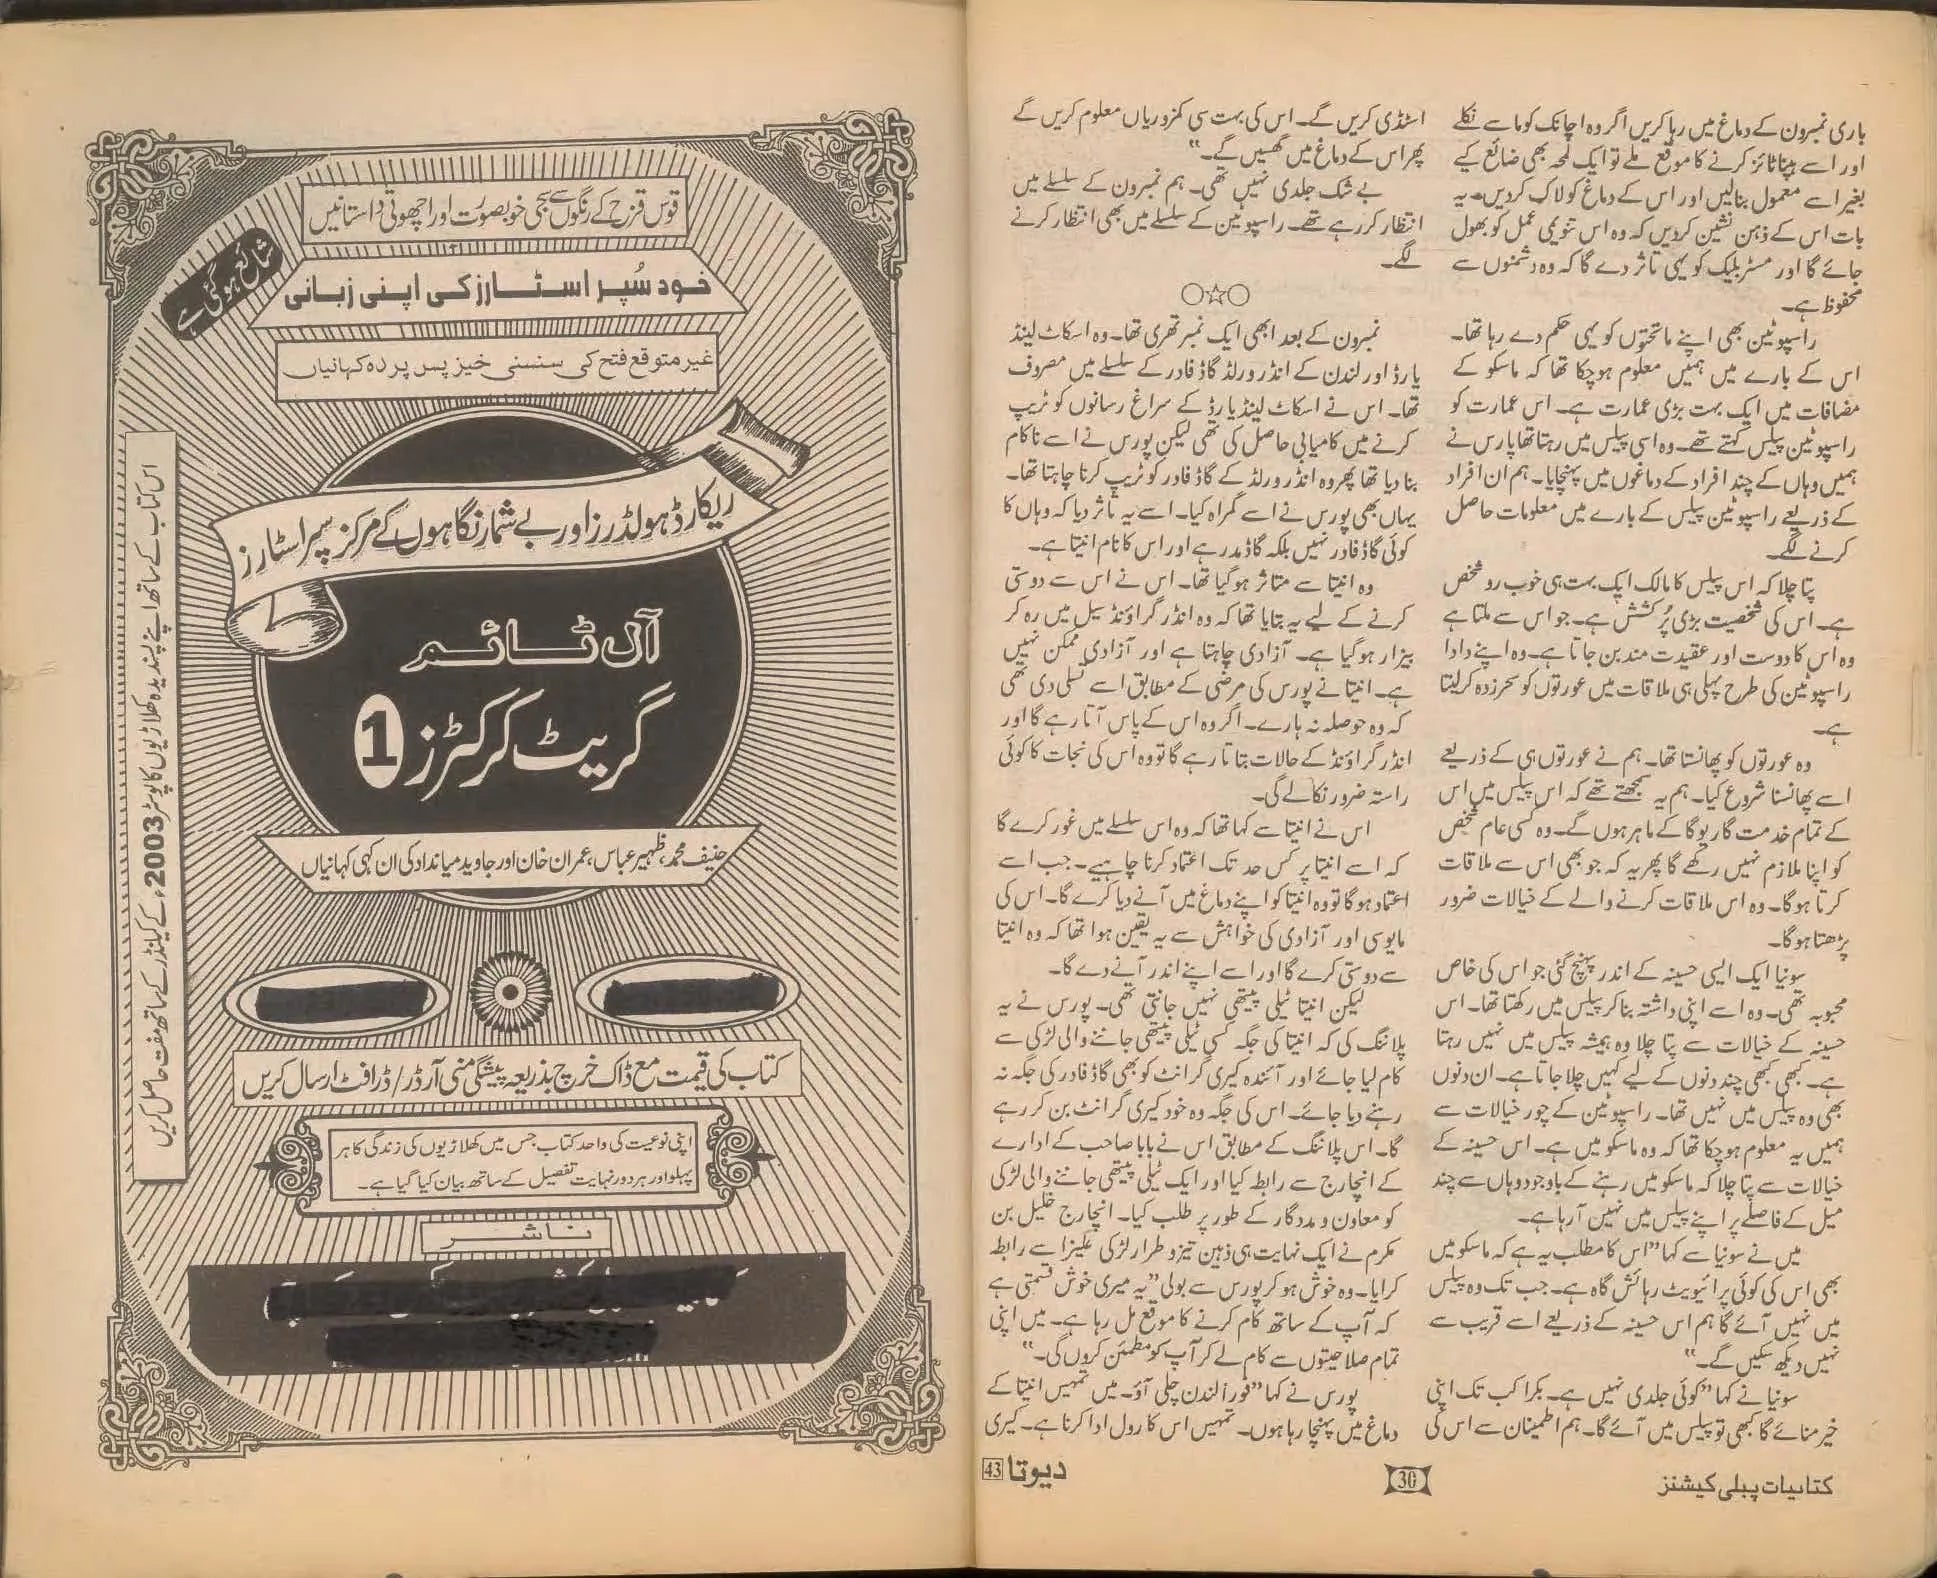 باری نمبرون کے دماغ میں رہا کریں اگر وہ اچانک کوما سے نکلے
اور اسے ہپناٹائز کرنے کا موقع ملے تو ایک لمحہ بھی ضائع کیے
بغیر اسے معمول بنالیں اور اس کے دماغ کو لاک کردیں۔ یہ
بات اس کے ذہن نشین کردیں کہ وہ اس تنویمی عمل کو بھول
جائے گا اور مسٹر بلیک کو یہی تاثر دے گا کہ وہ دشمنوں سے
محفوظ ہے۔
راسپوٹین بھی اپنے ماتحتوں کو یہی حکم دے رہا تھا۔
اس کے بارے میں ہمیں معلوم ہوچکا تھا کہ ماسکو کے
مضافات میں ایک بہت بڑی عمارت ہے۔ اس عمارت کو
راسپوٹین پیلس کہتے تھے۔ وہ اسی پیلس میں رہتا تھا پارس نے
ہمیں وہاں کے چند افراد کے دماغوں میں پہنچایا۔ ہم ان افراد
کے ذریعے راسپوٹین پیلس کے بارے میں معلومات حاصل
کرنے لگے۔
پتا چلا کہ اس پیلس کا مالک ایک بہت ہی خوب رو شخص
ہے۔ اس کی شخصیت بڑی پُرکشش ہے۔ جو اس سے ملتا ہے
وہ اس کا دوست اور عقیدت مند بن جاتا ہے۔ وہ اپنے دادا
راسپوٹین کی طرح پہلی ہی ملاقات میں عورتوں کو سحرزدہ کرلیتا
ہے۔
وہ عورتوں کو پھانستا تھا۔ ہم نے عورتوں ہی کے ذریعے
اسے پھانسنا شروع کیا۔ ہم یہ سمجھتے تھے کہ اس پیلس میں اس
کے تمام خدمت گار یوگا کے ماہر ہوں گے۔ وہ کسی عام شخص
کو اپنا ملازم نہیں رکھے گا پھر یہ کہ جو بھی اس سے ملاقات
کرتا ہوگا۔ وہ اس ملاقات کرنے والے کے خیالات ضرور
پڑھتا ہوگا۔
سونیا ایک ایسی حسینہ کے اندر پہنچ گئی جو اس کی خاص
محبوبہ تھی۔ وہ اسے اپنی داشتہ بنا کر پیلس میں رکھتا تھا۔ اس
حسینہ کے خیالات سے پتا چلا وہ ہمیشہ پیلس میں نہیں رہتا
ہے۔ کبھی کبھی چند دنوں کے لیے کہیں چلا جاتا ہے۔ ان دنوں
بھی وہ پیلس میں نہیں تھا۔ راسپوٹین کے چور خیالات سے
ہمیں یہ معلوم ہوچکا تھا کہ وہ ماسکو میں ہے۔ اس حسینہ کے
خیالات سے پتا چلا کہ ماسکو میں رہنے کے باوجود وہاں سے چند
میل کے فاصلے پر اپنے پیلس میں نہیں آرہا ہے۔
میں نے سونیا سے کہا "اس کا مطلب یہ ہے کہ ماسکو میں
بھی اس کی کوئی پرائیویٹ رہائش گاہ ہے۔ جب تک وہ پیلس
میں نہیں آئے گا ہم اس حسینہ کے ذریعے اسے قریب سے
نہیں دیکھ سکیں گے۔"
سونیا نے کہا "کوئی جلدی نہیں ہے۔ بکرا کب تک اپنی
خیر منائے گا کبھی تو پیلس میں آئے گا۔ ہم اطمینان سے اس کی
اسٹڈی کریں گے۔ اس کی بہت سی کمزوریاں معلوم کریں گے
پھر اس کے دماغ میں گھسیں گے۔"
بے شک جلدی نہیں تھی۔ ہم نمبرون کے سلسلے میں
انتظار کررہے تھے۔ راسپوٹین کے سلسلے میں بھی انتظار کرنے
لگے۔
○☆○
نمبرون کے بعد ابھی ایک نمبر تھری تھا۔ وہ اسکاٹ لینڈ
یارڈ اور لندن کے انڈرورلڈ گاڈ فادر کے سلسلے میں مصروف
تھا۔ اس نے اسکاٹ لینڈ یارڈ کے سراغ رسانوں کو ٹریپ
کرنے میں کامیابی حاصل کی تھی لیکن پورس نے اسے ناکام
بنا دیا تھا پھر وہ انڈر ورلڈ کے گاڈ فادر کو ٹریپ کرنا چاہتا تھا۔
یہاں بھی پورس نے اسے گمراہ کیا۔ اسے یہ تاثر دیا کہ وہاں کا
کوئی گاڈ فادر نہیں بلکہ گاڈ مدر ہے اور اس کا نام انیتا ہے۔
وہ انیتا سے متاثر ہوگیا تھا۔ اس نے اس سے دوستی
کرنے کے لیے یہ بتایا تھا کہ وہ انڈر گراؤنڈ سیل میں رہ کر
بیزار ہوگیا ہے۔ آزادی چاہتا ہے اور آزادی ممکن نہیں
ہے۔ انیتا نے پورس کی مرضی کے مطابق اسے تسلی دی تھی
کہ وہ حوصلہ نہ ہارے۔ اگر وہ اس کے پاس آتا رہے گا اور
انڈر گراؤنڈ کے حالات بتاتا رہے گا تو وہ اس کی نجات کا کوئی
راستہ ضرور نکالے گی۔
اس نے انیتا سے کہا تھا کہ وہ اس سلسلے میں غور کرے گا
کہ اسے انیتا پر کس حد تک اعتماد کرنا چاہیے۔ جب اسے
اعتماد ہوگا تو وہ انیتا کو اپنے دماغ میں آنے دیا کرے گا۔ اس کی
مایوسی اور آزادی کی خواہش سے یہ یقین ہوا تھا کہ وہ انیتا
سے دوستی کرے گا اور اسے اپنے اندر آنے دے گا۔
لیکن انیتا ٹیلی پیتھی نہیں جانتی تھی۔ پورس نے یہ
پلاننگ کی کہ انیتا کی جگہ کسی ٹیلی پیتھی جاننے والی لڑکی سے
کام لیا جائے اور آئندہ کیری گرانٹ کو بھی گاڈ فادر کی جگہ نہ
رہنے دیا جائے۔ اس کی جگہ وہ خود کیری گرانٹ بن کر رہے
گا۔ اس پلاننگ کے مطابق اس نے بابا صاحب کے ادارے
کے انچارج سے رابطہ کیا اور ایک ٹیلی پیتھی جاننے والی لڑکی
کو معاون و مددگار کے طور پر طلب کیا۔ انچارج خلیل بن
مکرم نے ایک نہایت ہی ذہین تیز و طرار لڑکی علیزا سے رابطہ
کرایا۔ وہ خوش ہو کر پورس سے بولی "یہ میری خوش قسمتی ہے
کہ آپ کے ساتھ کام کرنے کا موقع مل رہا ہے۔ میں اپنی
تمام صلاحیتوں سے کام لے کر آپ کو مطمئن کروں گی۔"
پورس نے کہا "فوراً لندن چلی آؤ۔ میں تمہیں انیتا کے
دماغ میں پہنچا رہا ہوں۔ تمہیں اس کا رول ادا کرنا ہے۔ کیری
کتابیات پبلی کیشنز
30
دیوتا 43
قوس قزح کے رنگوں سے سجی خوبصورت اور اچھوتی داستانیں
شائع ہو گئی ہے
خود سُپر اسٹارز کی اپنی زبانی
غیر متوقع فتح کی سنسنی خیز پس پردہ کہانیاں
ریکارڈ ہولڈرز اور بے شمار نگاہوں کے مرکز سپر اسٹارز
آل ٹائم
گریٹ کرکٹرز 1
حنیف محمد، ظہیر عباس، عمران خان اور جاوید میانداد کی ان کہی کہانیاں
کتاب کی قیمت مع ڈاک خرچ بذریعہ پیشگی منی آرڈر/ڈرافٹ ارسال کریں
اپنی نوعیت کی واحد کتاب جس میں کھلاڑیوں کی زندگی کا ہر
پہلو اور ہر دور نہایت تفصیل کے ساتھ بیان کیا گیا ہے۔
ناشر
اس کتاب کے ساتھ اپنے پسندیدہ کھلاڑیوں کا پوسٹر 2003ء کے کیلنڈر کے ساتھ مفت حاصل کریں